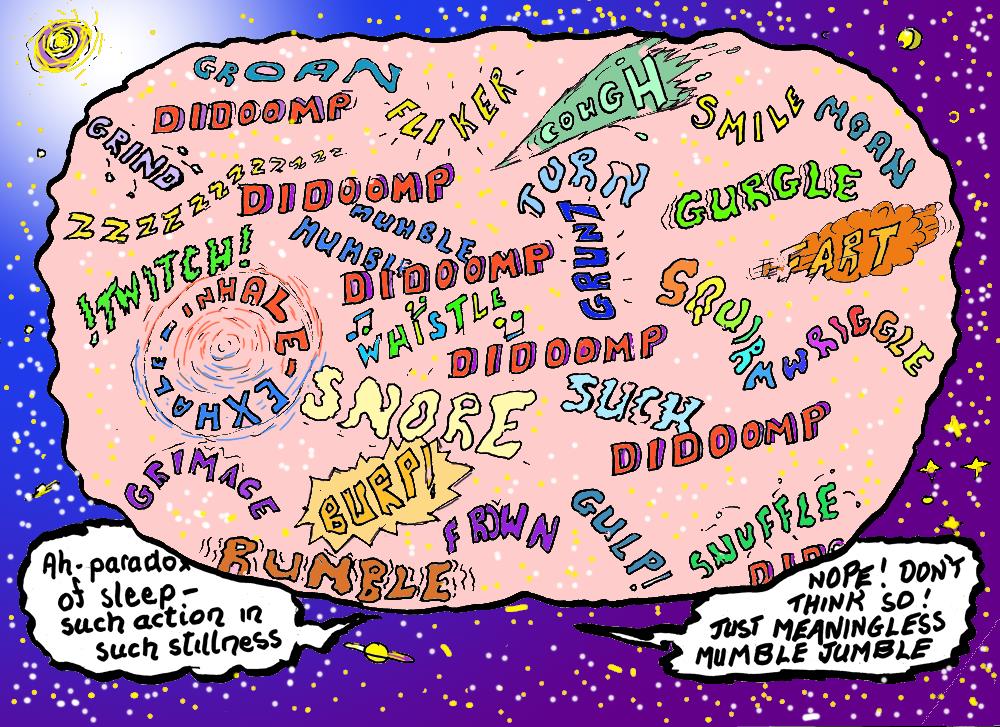 GROAN
DIDOOMP
FLIKER
COUGH
SMILE
MOAN
GRIND
ZZZZZZZZZZZZZ
DIDOOMP
MUMBLE
MUMBLE
TURN
GRUNT
GURGLE
ART
!TWITCH!
DIDOOMP
INHALE - EXHALE -
WHISTLE
DIDOOMP
SQUIRE
WRIGGLE
SNORE
SUCH
DIDOOMP
GRIMACE
BURP!
FROWN
GULP!
SNUFFLE
RUMBLE
DIDO
Ah - paradox
of sleep -
such action in
such stillness
NOPE! DON'T
THINK SO!
JUST MEANINGLESS
MUMBLE JUMBLE